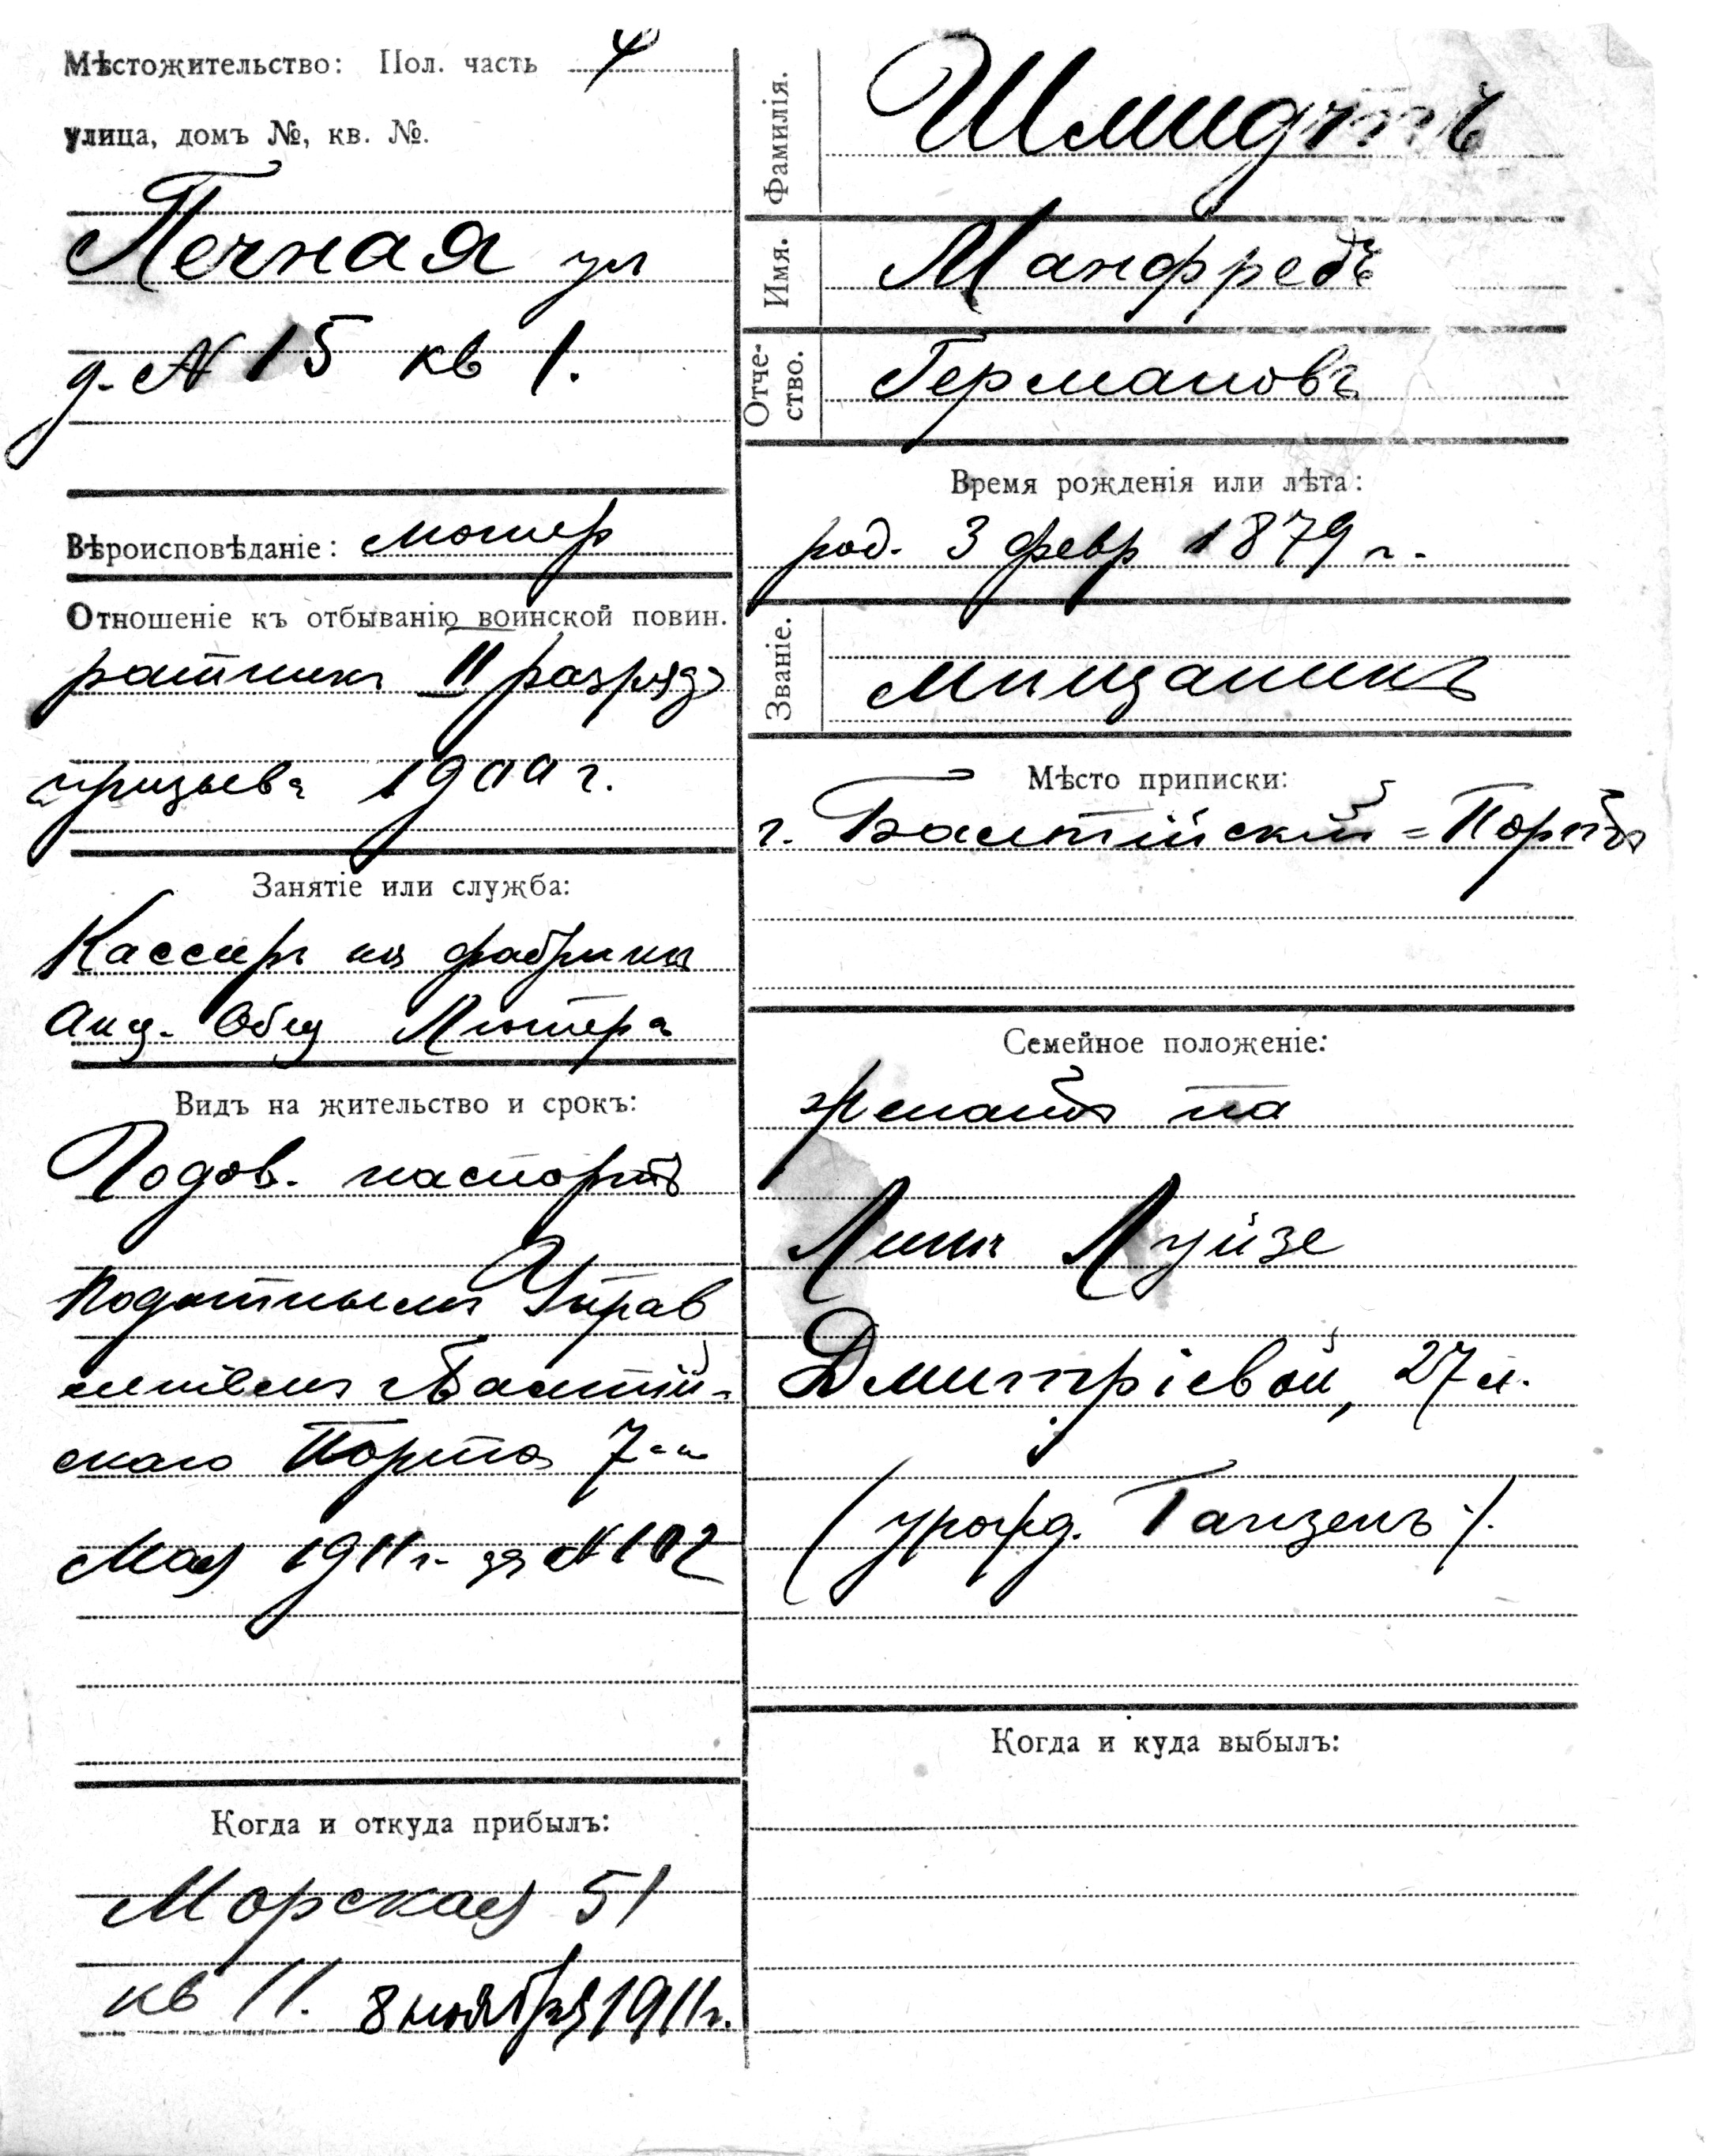 Мѣстожительство: Пол. часть 4
улица, домъ №, кв. №.
Печная ул
д. № 15 кв 1.
Вѣроисповѣданіе: лютер
Отношеніе къ отбыванію воинской повин.
ратникъ II разряда
призыва 1900 г.
Занятіе или служба:
Кассиръ на фабрикѣ
Акц. Общ Лютера
Видъ на жительство и срокъ:
Годов. паспортъ
Податнымъ Управ
леніемъ Балтій-
скаго Порта 7-го
Мая 1911 г. за № 102
Когда и откуда прибылъ:
Морская 51
кв 11. 8 ноября 1911 г.
Фамилія. Шмидтъ
Имя. Манфредъ
Отче-
ство. Германовъ
Время рожденія или лѣта:
род. 3 февр 1879 г.
Званіе. Мѣщанинъ
Мѣсто приписки:
г. Балтійскій-Портъ
Семейное положеніе:
Женатъ на
Луизе
Дмитріевой, 27 л.
(урожд. Ганзенъ).
Когда и куда выбылъ: